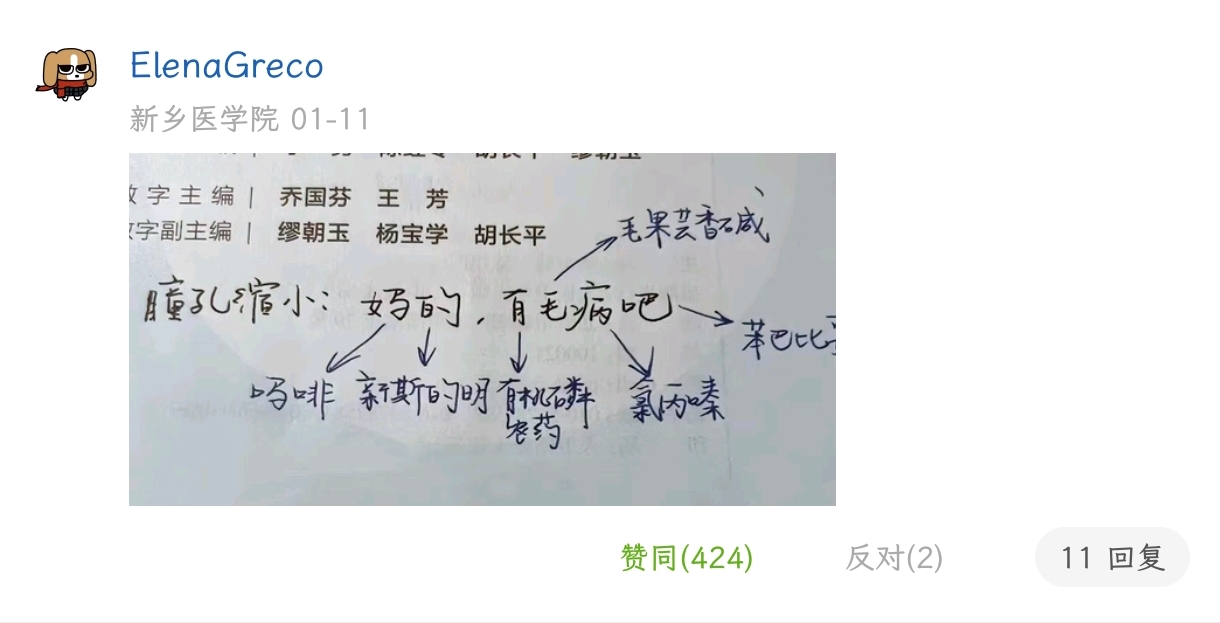 ElenaGreco
新乡医学院 01-11
字主编 | 乔国芬 王 芳
字副主编 | 缪朝玉 杨宝学 胡长平
毛果芸香碱
瞳孔缩小: 妈的,有毛病吧
苯巴比
吗啡 新斯的明 有机磷农药 氯丙嗪
赞同(424) 反对(2) 11 回复